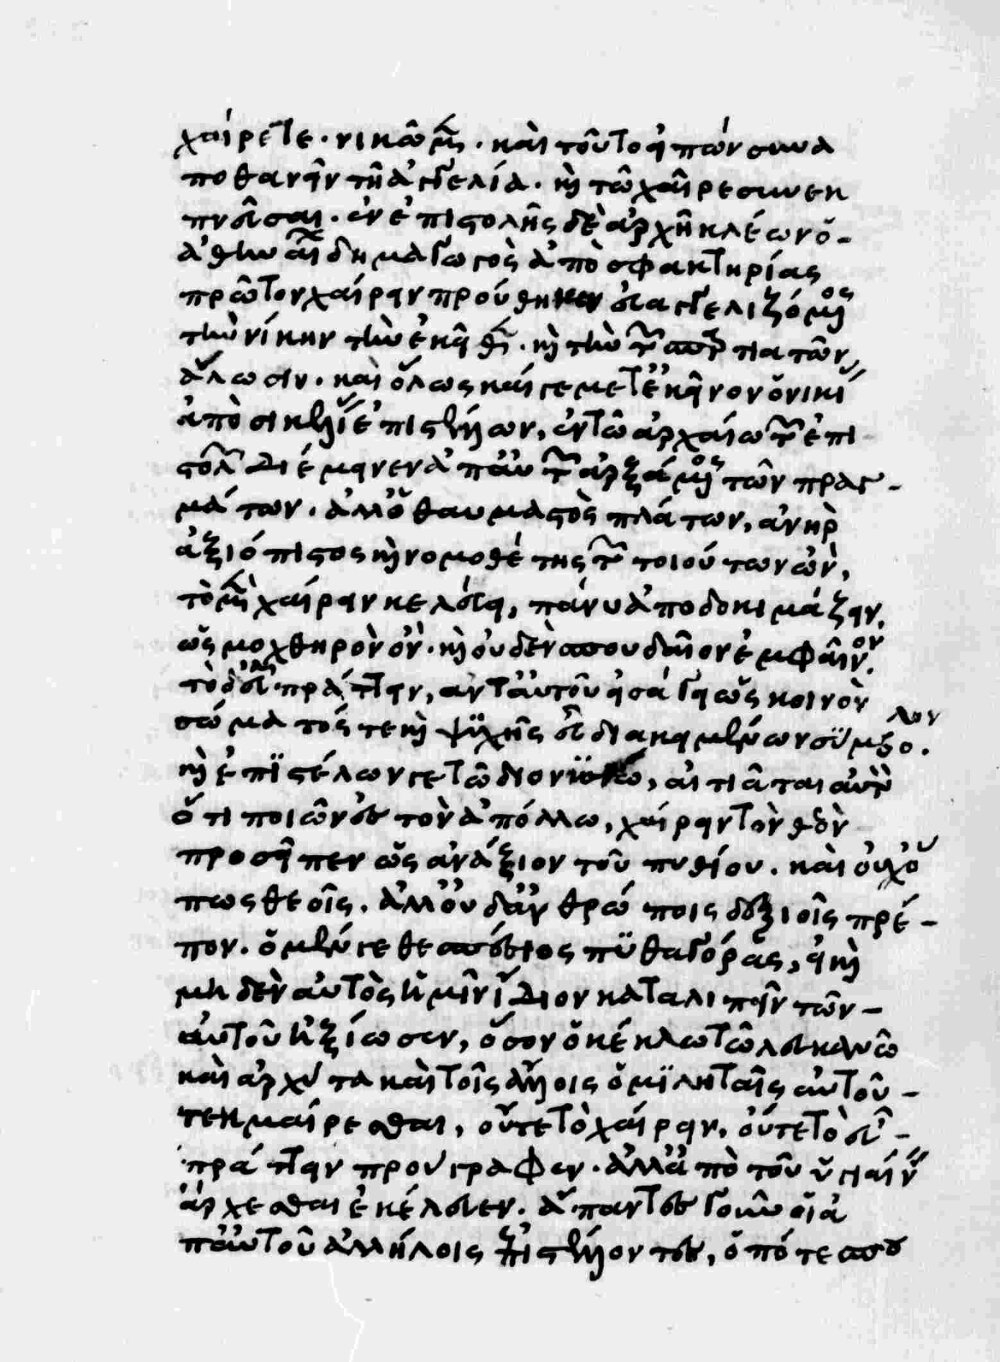 χαίρετε· νικῶμεν· καὶ τοῦτο εἰπὼν συνα
ποθανεῖν τῇ ἀγγελίᾳ· καὶ τῷ χαίρε συνεκ
πνεῦσαι· ἐν ἐπιστολῆς δὲ ἀρχῇ κλέων ὁ
ἀθηναῖος δημαγωγὸς ἀπὸ σφακτηρίας
πρῶτον χαίρειν προύθηκεν εὐαγγελιζόμενος
τὴν νίκην τὴν ἐκεῖθεν· καὶ τὴν τῶν σπαρτιατῶν
ἅλωσιν· καὶ ὅλως καί γε μετ' ἐκεῖνον ὁ νικί
ἀπὸ σικελίας ἐπιστέλλων, ἐν τῷ ἀρχαίῳ τῶν ἐπι
στολῶν διέμεινεν ἀπ' αὐτῶν ἀρξάμενος τῶν πραγ
μάτων· ἀλλ' ὁ θαυμαστὸς πλάτων, ἀνὴρ
ἀξιόπιστος καὶ νομοθέτης τῶν τοιούτων ὢν,
τὸ μὲν χαίρειν κελεύει, πάνυ ἀποδοκιμάζειν,
ὡς μοχθηρὸν ὂν· καὶ οὐδὲν σπουδαῖον ἐμφαῖνον.
τὸ δ' εὖ πράττειν, ἀντ' αὐτοῦ εἰσάγει ὡς κοινὸν
σώματός τε καὶ ψϋχῆς εὖ διακειμένων σϋμβολον.
καὶ ἐπϊστέλων γε τῷ διονϋσίῳ, αἰτιᾶται αὐτὸν
ὅτι ποιῶν ἐς τὸν ἀπόλλω, χαίρειν τὸν θεὸν
προσεῖπεν ὡς ἀνάξιον τοῦ πυθίου· καὶ οὐχ ὅ
πως θεοῖς· ἀλλ' οὐδ' ἀνθρώποις δεξιοῖς πρέ
πον· ὁ μέν γε θεσπέσιος πϋθαγόρας, εἰ καὶ
μηδὲν αὐτὸς ἡμῖν ἴδιον καταλιπεῖν τῶν
αὐτοῦ ἠξίωσεν, ὅσον ὀκέκλω τῷ λευκανῷ
καὶ ἀρχύτα καὶ τοῖς ἄλλοις ὁμϊληταῖς αὐτοῦ
τεκμαίρεσθαι, οὔτε τὸ χαίρειν, οὔτε τὸ εὖ
πράττειν προύγραφεν· ἀλλ' ἀπὸ τοῦ ὑγιαίνειν
ἄρχεσθαι ἐκέλευεν· ἅπαντες γοῦν οἱ ἀ
π' αὐτοῦ ἀλλήλοις ἐπιστέλλοντες, ὁπότε σπου